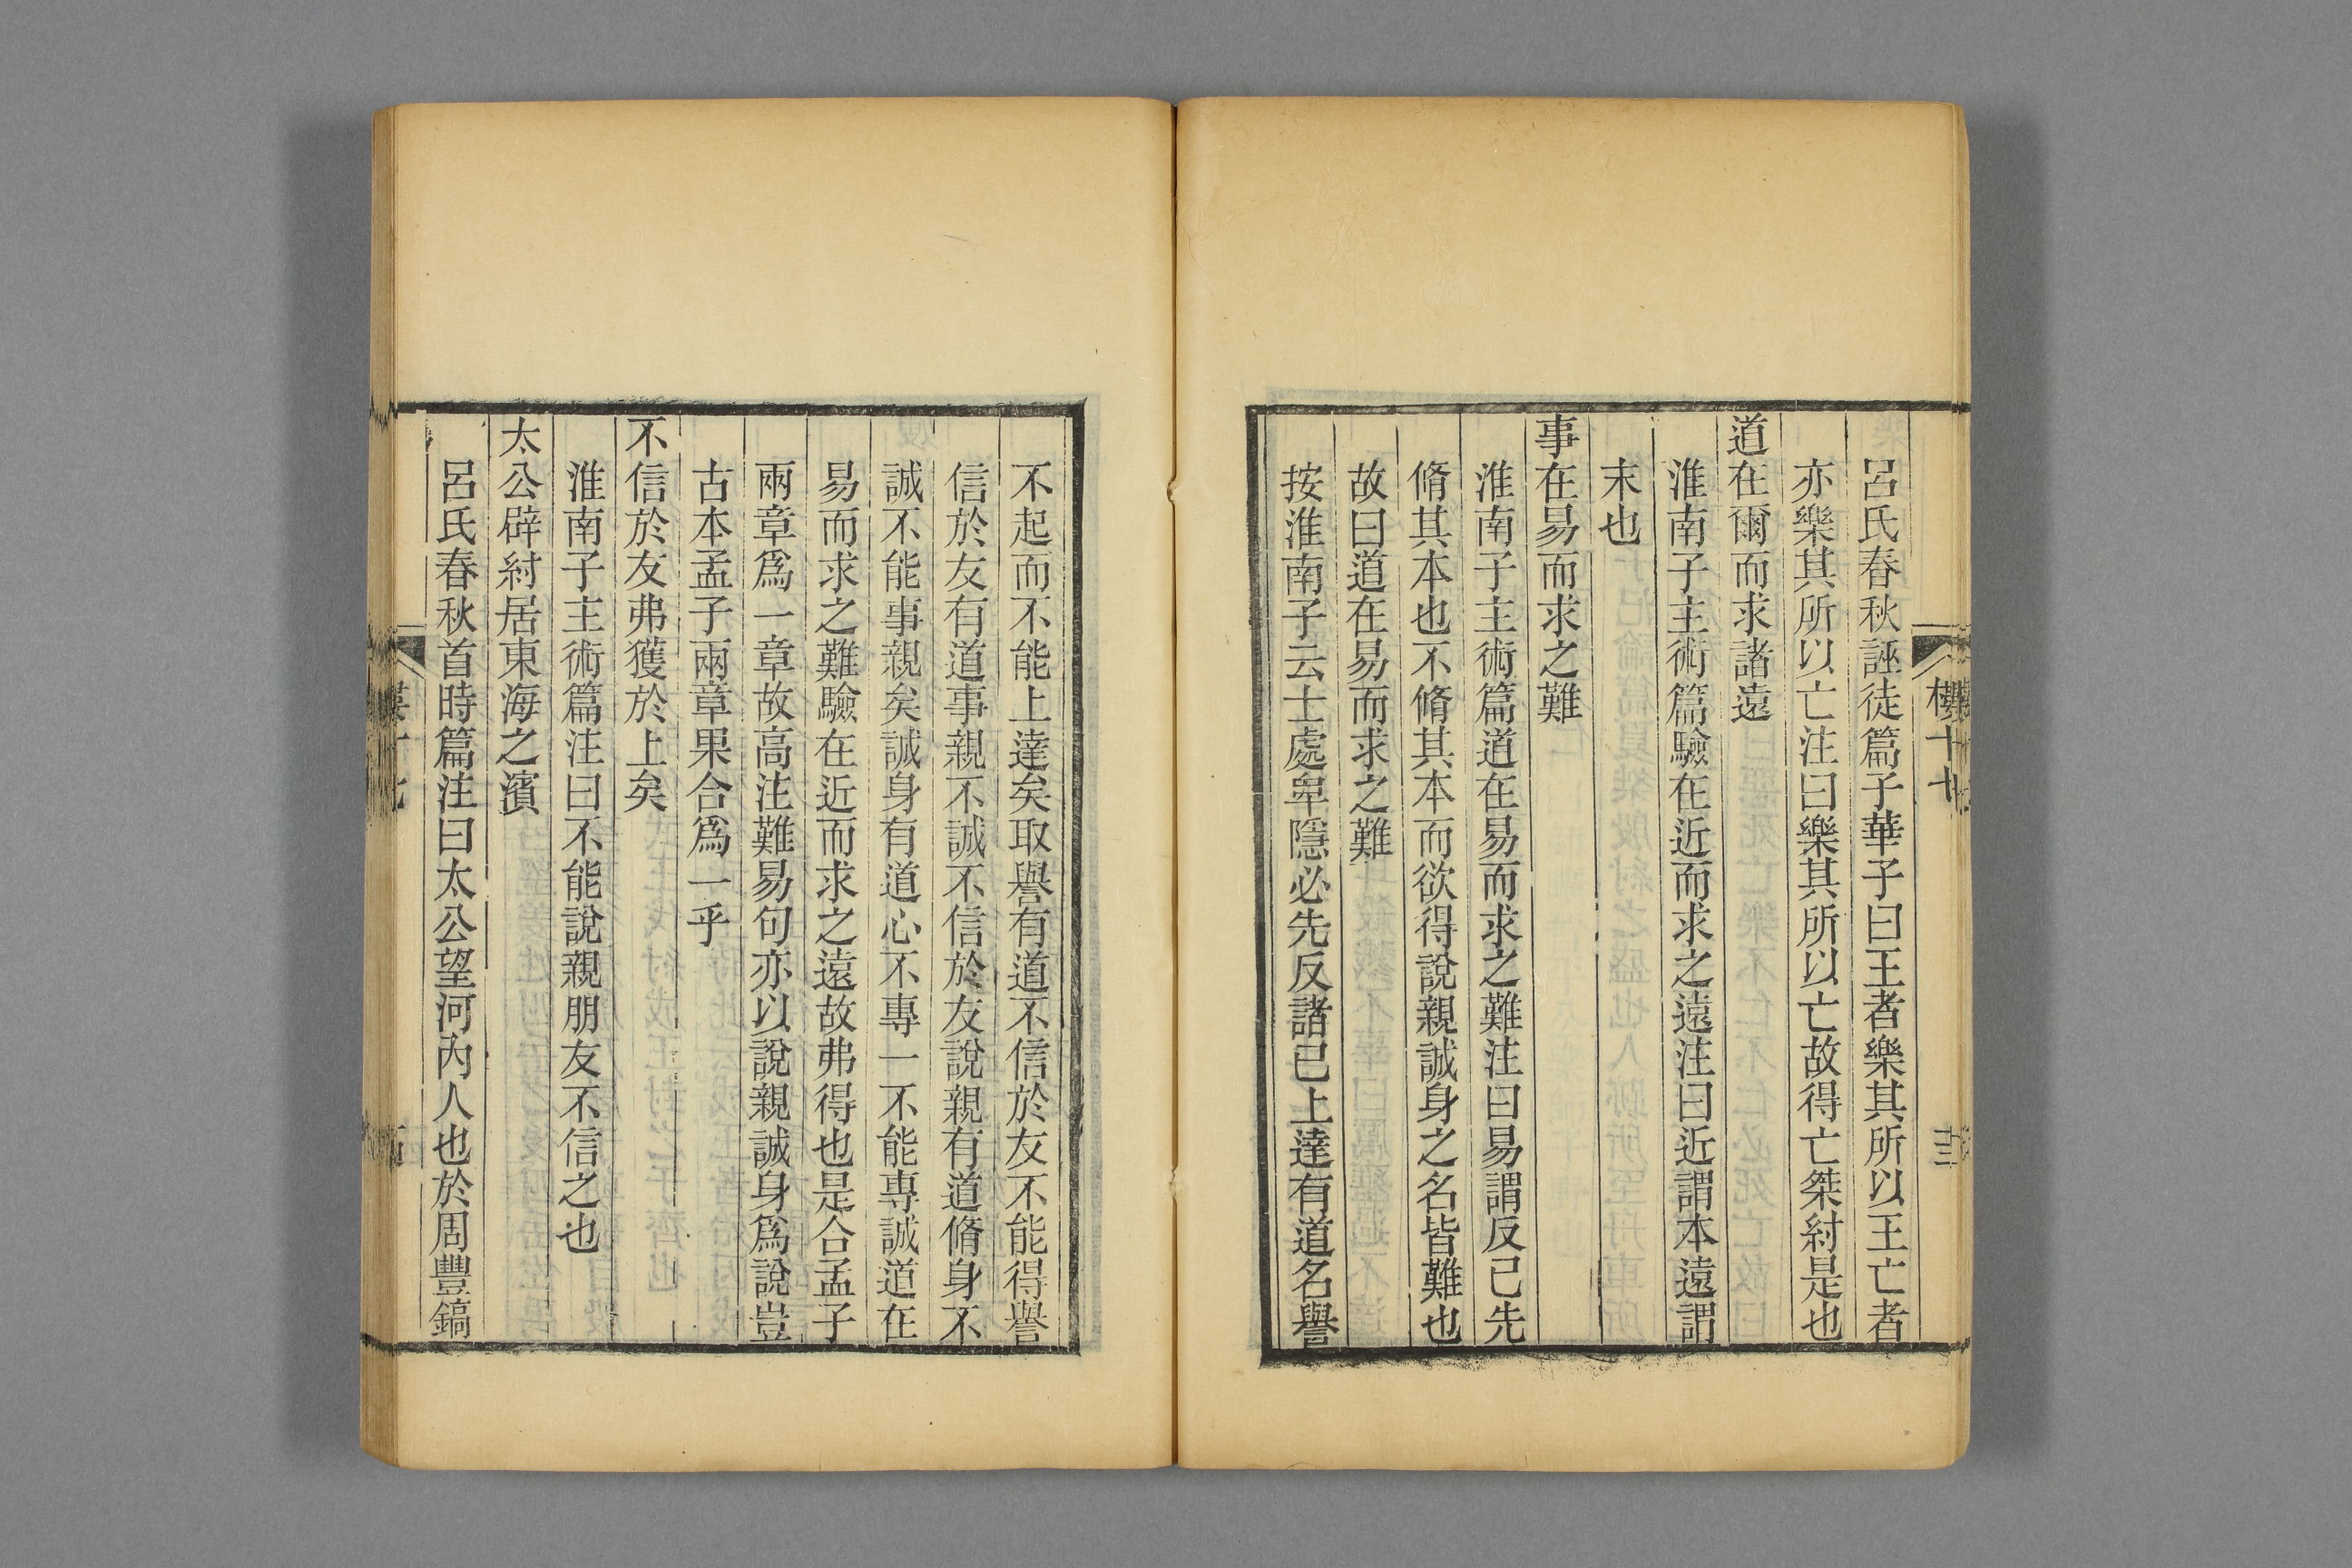 呂氏春秋誣徒篇子華子曰王者樂其所以王亡者
亦樂其所以亡注曰樂其所以亡故得亡桀紂是也
道在爾而求諸遠
淮南子主術篇驗在近而求之遠注曰近謂本遠謂
末也
事在易而求之難
淮南子主術篇道在易而求之難注曰易謂反己先
脩其本也不脩其本而欲得說親誠身之名皆難也
故曰道在易而求之難
按淮南子云士處卑隱必先反諸己上達有道名譽
不起而不能上達矣取譽有道不信於友不能得譽
信於友有道事親不誠不信於友說親有道脩身不
誠不能事親矣誠身有道心不專一不能專誠道在
易而求之難驗在近而求之遠故弗得也是合孟子
兩章爲一章故高注難易句亦以說親誠身爲說豈
古本孟子兩章果合爲一乎
不信於友弗獲於上矣
淮南子主術篇注曰不能說親朋友不信之也
太公辟紂居東海之濱
呂氏春秋首時篇注曰太公望河內人也於周豐鎬